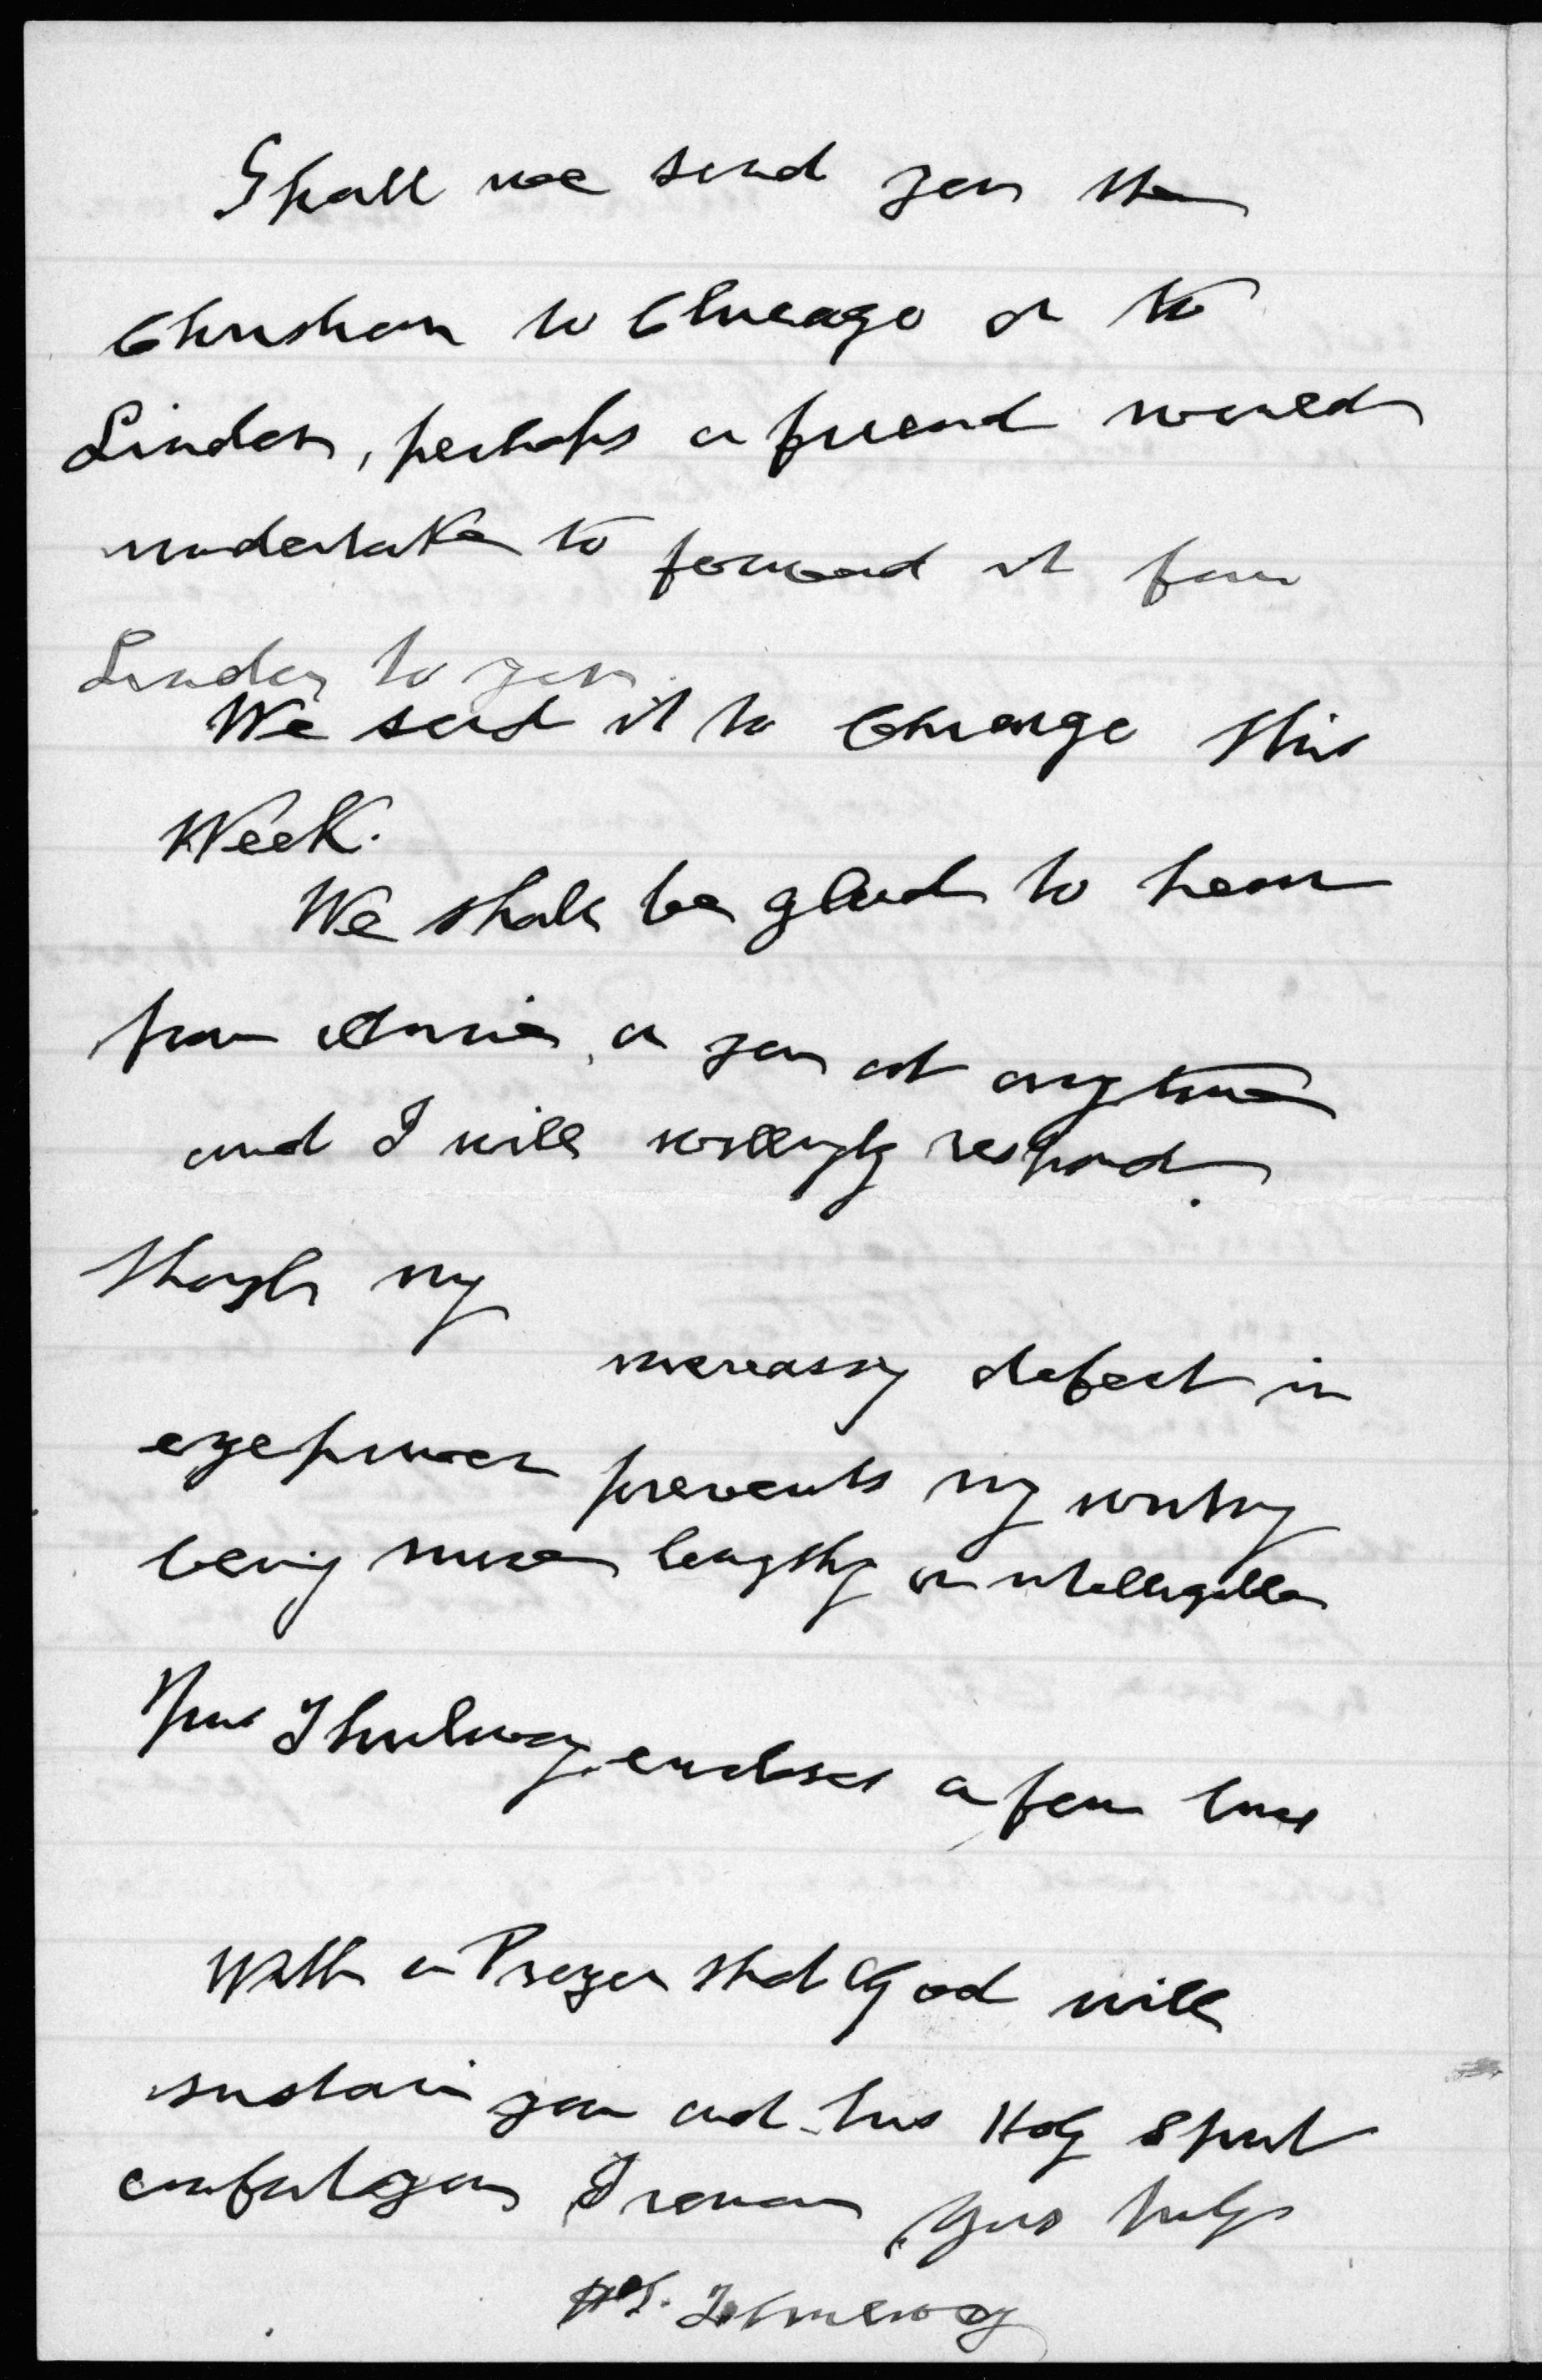 Shall we send you the
Christian to Chicago or to
Linden, perhaps a friend would
undertake to forward it from
Linden to you.
We send it to Chicago this
Week.
We shall be glad to hear
from Annie, or you at any time
and I will willingly respond.
Though my
increasing defect in
eye power prevents my writing
being more lengthy or intelligible
encloses a few lines
With a Prayer that God will
sustain you and his Holy Spirit
comfort you I remain Yours truly